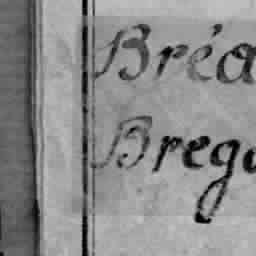 Bréa
Brega